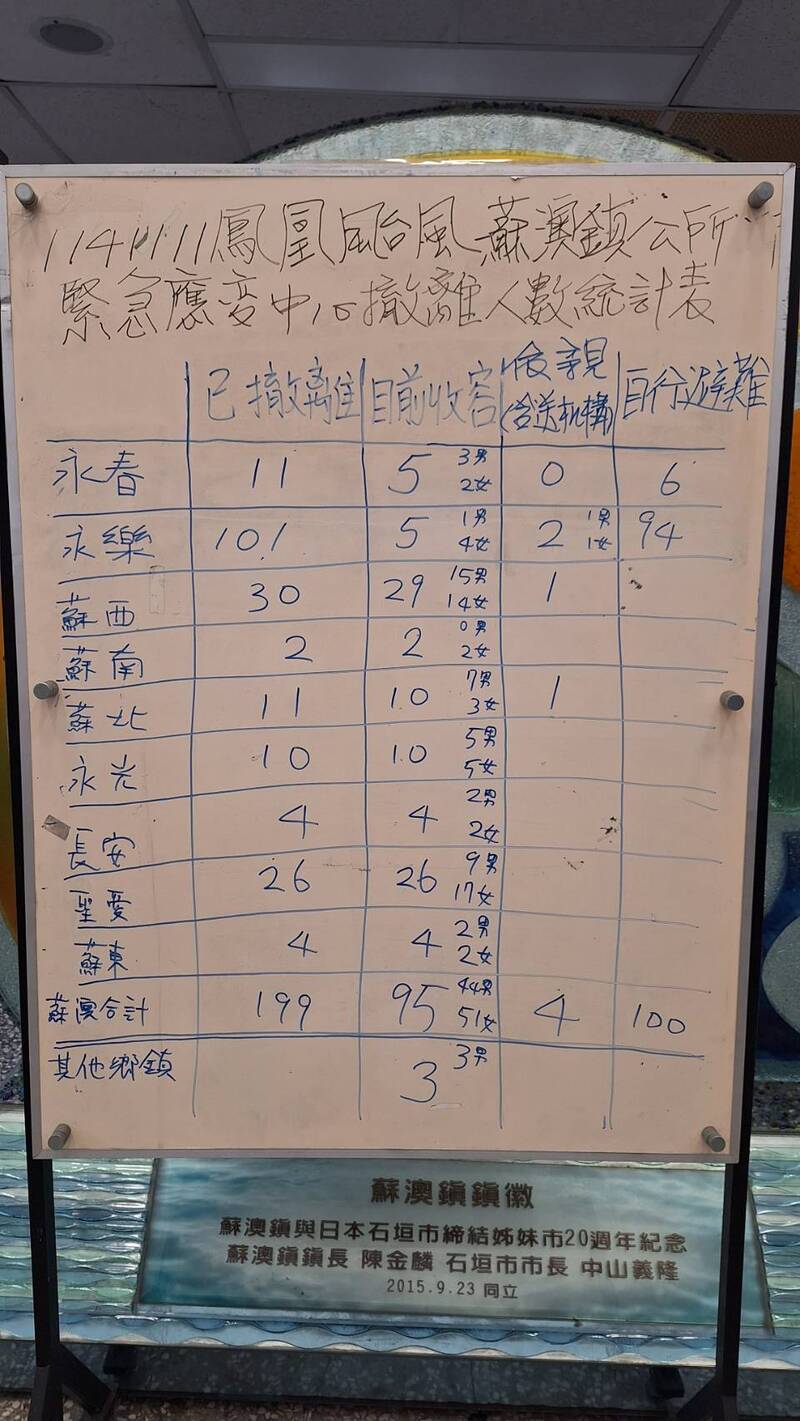 1141111鳳凰颱風蘇澳鎮公所
緊急應變中心撤離人數統計表
已撤離 目前收容 依親(含送机構) 自行避難
永春 11 5 3男 2女 0 6
永樂 101 5 1男 4女 2 1男 1女 94
蘇西 30 29 15男 14女 1
蘇南 2 2 0男 2女
蘇北 11 10 7男 3女 1
永光 10 10 5男 5女
長安 4 4 2男 2女
聖愛 26 26 9男 17女
蘇東 4 4 2男 2女
蘇澳合計 199 95 44男 51女 4 100
其他鄉鎮 3 3男
蘇澳鎮鎮徽
蘇澳鎮與日本石垣市締結姊妹市20週年紀念
蘇澳鎮鎮長 陳金麟 石垣市市長 中山義隆
2015.9.23 同立